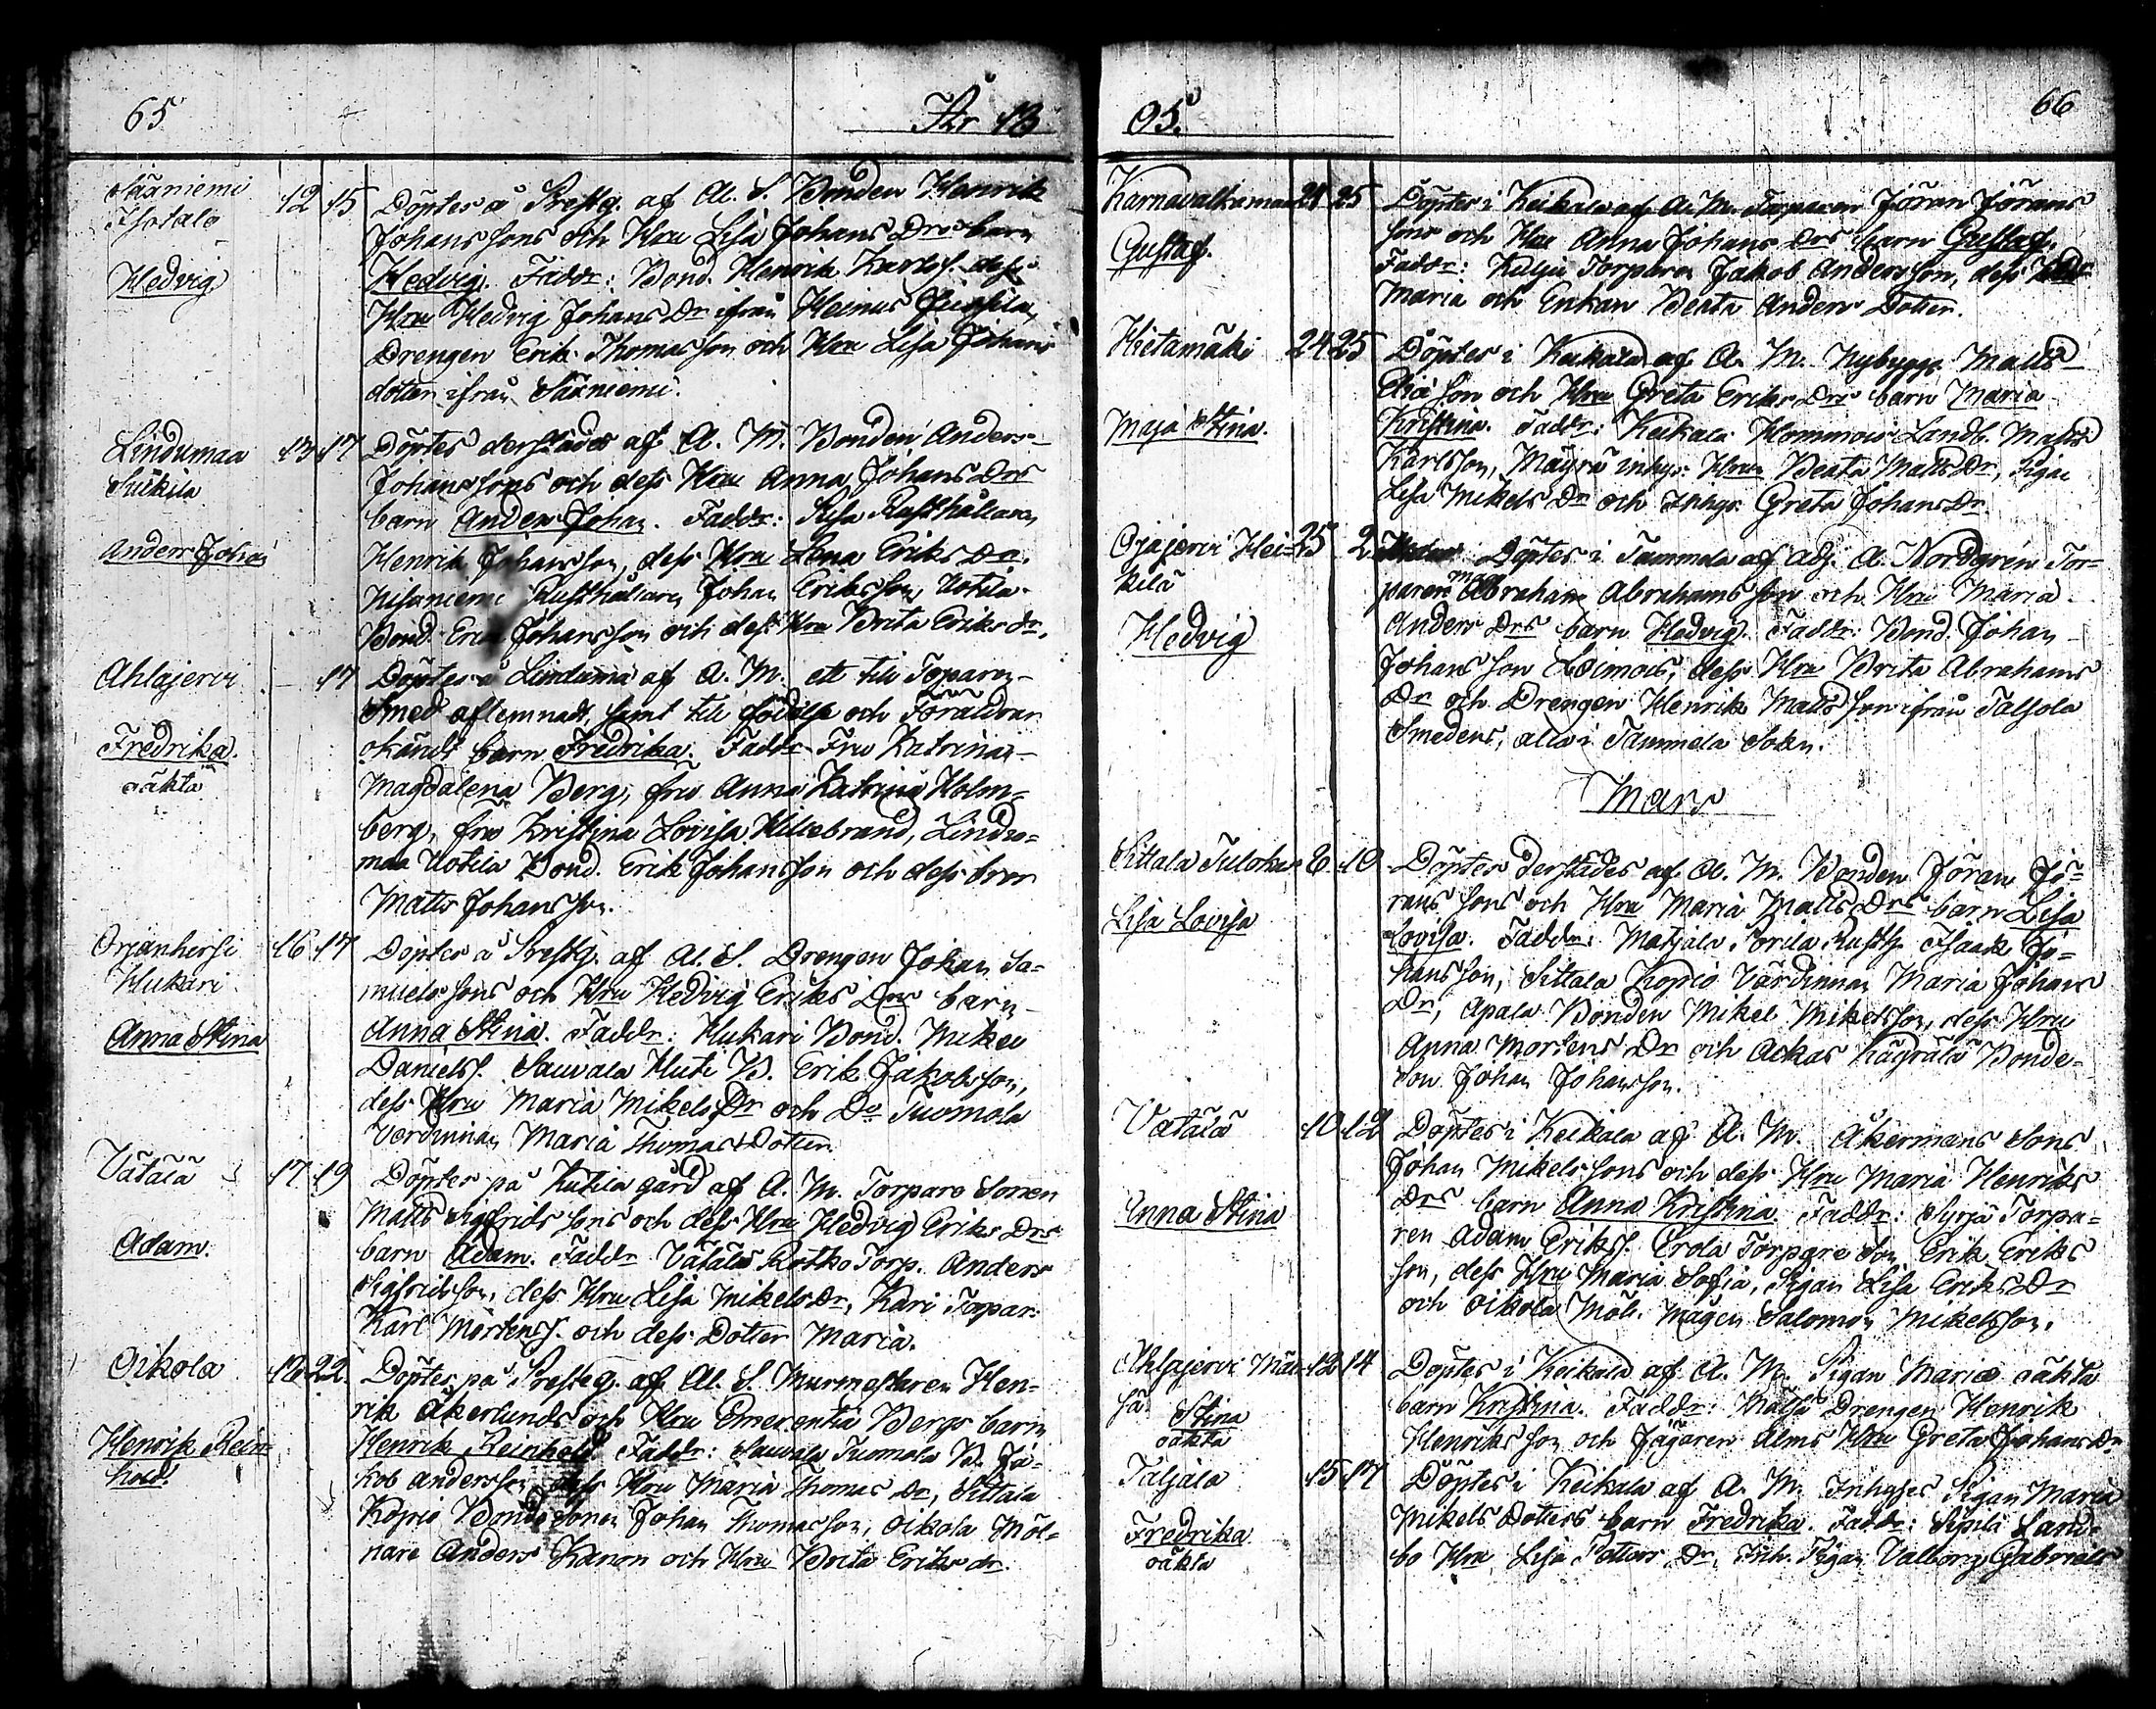 65
År 18
Sääniemi
Isotalo
Hedvig
12 15
Döptes å Prestg. af Al. S. Bonden Henrik
Johanssons och Hru Lisa Johans Drs barn
Hedvig. Faddr: Bond. Henrik Karlss. dess
Hru Hedvig Johans Dr ifrån Heinus
Drengen Erik Thomasson och Hru Lisa Johans
dotter ifrån Sääniemi.
Lindumaa
Anders Johan
13 17
Döptes derstädes af A. M. Bonden Anders
Johanssons och dess Hru Anna Johans Drs
barn Anders Johan. Faddr: Rusthållaren
Henrik Johansson, dess Hru Lena Eriks Dr.
Rusthållaren Johan Eriksson, Uotila
Bond. Erik Johansson och dess Hru Brita Eriks dr.
Ahlajervi
Fredrika.
oäkta
17
Döptes å Linduma af A. M. ett till Torparen
Smed aflemnadt, samt till födelse och Föräldrar
okändt barn Fredrika. Faddr Fru Katrina
Magdalena Berg, fru Anna Katrina Holm=
berg, fru Kristina Lovisa Hillebrand, Lindu=
maa Uotila Bond. Erik Johansson och dess bror
Matts Johansson.
Orjanhersi
Hukari
Anna Stina
16 17
Döptes å Prestg. af Al. S. Drengen Johan Sa=
muelssons och Hru Hedvig Eriks Drs barn
Anna Stina. Faddr: Hukari Bond. Mikel
Daniels. Sauvala Huti B. Erik Jakobsson,
dess Hru Maria Mikels Dr och Do Tuomola
Värdinnan Maria Thomas Dotter.
Vätälä
Adam.
17 19
Döptes på Kutila gård af A. M. Torpare Sonen
Matts Sigfrids sons och dess Hru Hedvig Eriks Drs
barn Adam. Faddr Vätälä Rotko Torp. Anders
Sigfridsson, dess Hru Lisa Mikels Dr, Kari Torpar.
Karl Mårtens. och dess Dotter Maria.
Oikola
Henrik Rein=
hold.
18 22
Döptes på Prestg. af Al. S. Murmestaren Hen=
rik Åkerlunds och Hru Emerentia Bergs barn
Henrik Reinhold. Faddr: Sauvala Tuomola B. Ja=
kob Andersson dess Hru Maria Thomas Dr, Sittala
Kopio Bonde Sonen Johan Thomasson, Oikola Möl=
nare Anders Kanon och Hru Brita Eriks dr.
05.
66
Karnavalkaman
Gustaf.
24 25
Döptes i Keikala af A. M. Torparen Jöran Jörans
sons och Hru Anna Johans Drs barn Gustaf.
Faddr: Kilja Torparen Jakob Andersson, dess
Maria och Enkan Beata Anders Dotter.
Hietamäki
Maja Stina.
24 25
Döptes i Keikala af A. M. Nybygg. Matts
son och Hru Greta Eriks Drs barn Maria
Kristina. Faddr: Keikala Hommois Landb. Matts
Karlsson, Mäyrä inhys: Hrun Beata Matts Dr, Pigan
Lisa Mikels Dr och Inhys. Greta Johans Dr.
Ojajervi Hei=
kilä
Hedvig
25 2
Döptes i Tammela af Adj. A. Nordgrén Tor=
paren Abraham Abrahams son och Hru Maria
Anders Drs barn Hedvig. Faddr: Bond. Johan
Johansson Loimois, dess Hru Brita Abrahams
Dr och Drengen Henrik Matts son ifrån Talsola
Smedens, alla i Tammela Sokn.
Mars
Sittala
Lisa Lovisa
8 10
Döptes derstädes af A. M. Bonden Jöran Jö=
rans sons och Hru Maria Matts Drs barn Lisa
Lovisa. Faddr: Matjala Rusth. Isaak Jo=
hansson, Sittala Kopio Värdinnan Maria Johans
Dr, Apala Bonden Mikel Mikelsson, dess Hru
Anna Mortens Dr och Ackas Käyrälä Bonde=
son Johan Johansson.
Vätälä
Anna Stina
10 12
Döptes i Keikala af A. M. Åkermans Sons
Johan Mikelssons och dess Hru Maria Henriks
Drs barn Anna Kristina. Faddr: Syrjä Torpa=
ren Adam Eriks. Erola Torpare Son Erik Eriks
son, dess Hru Maria Sofia, Pigan Lisa Eriks Dr
och Oikola Möl. Mågen Salomon Mikelsson.
Ahlajervi Män=
sä
Stina
oäkta
12 14
Döptes i Keikala af A. M. Pigan Marias oäkta
barn Kristina. Faddr: Mälsä Drengen Henrik
Henriks son och Jägaren Alms Hru Greta Johans Dr
Taljala
Fredrika
oäkta
15 17
Döptes i Keikala af A. M. Inhyses Pigan Maria
Mikels Dotters barn Fredrika. Faddr: Sipilä Land=
bo Hru Lisa Petters Dr, Inh. Pigan Valborg Gabriels